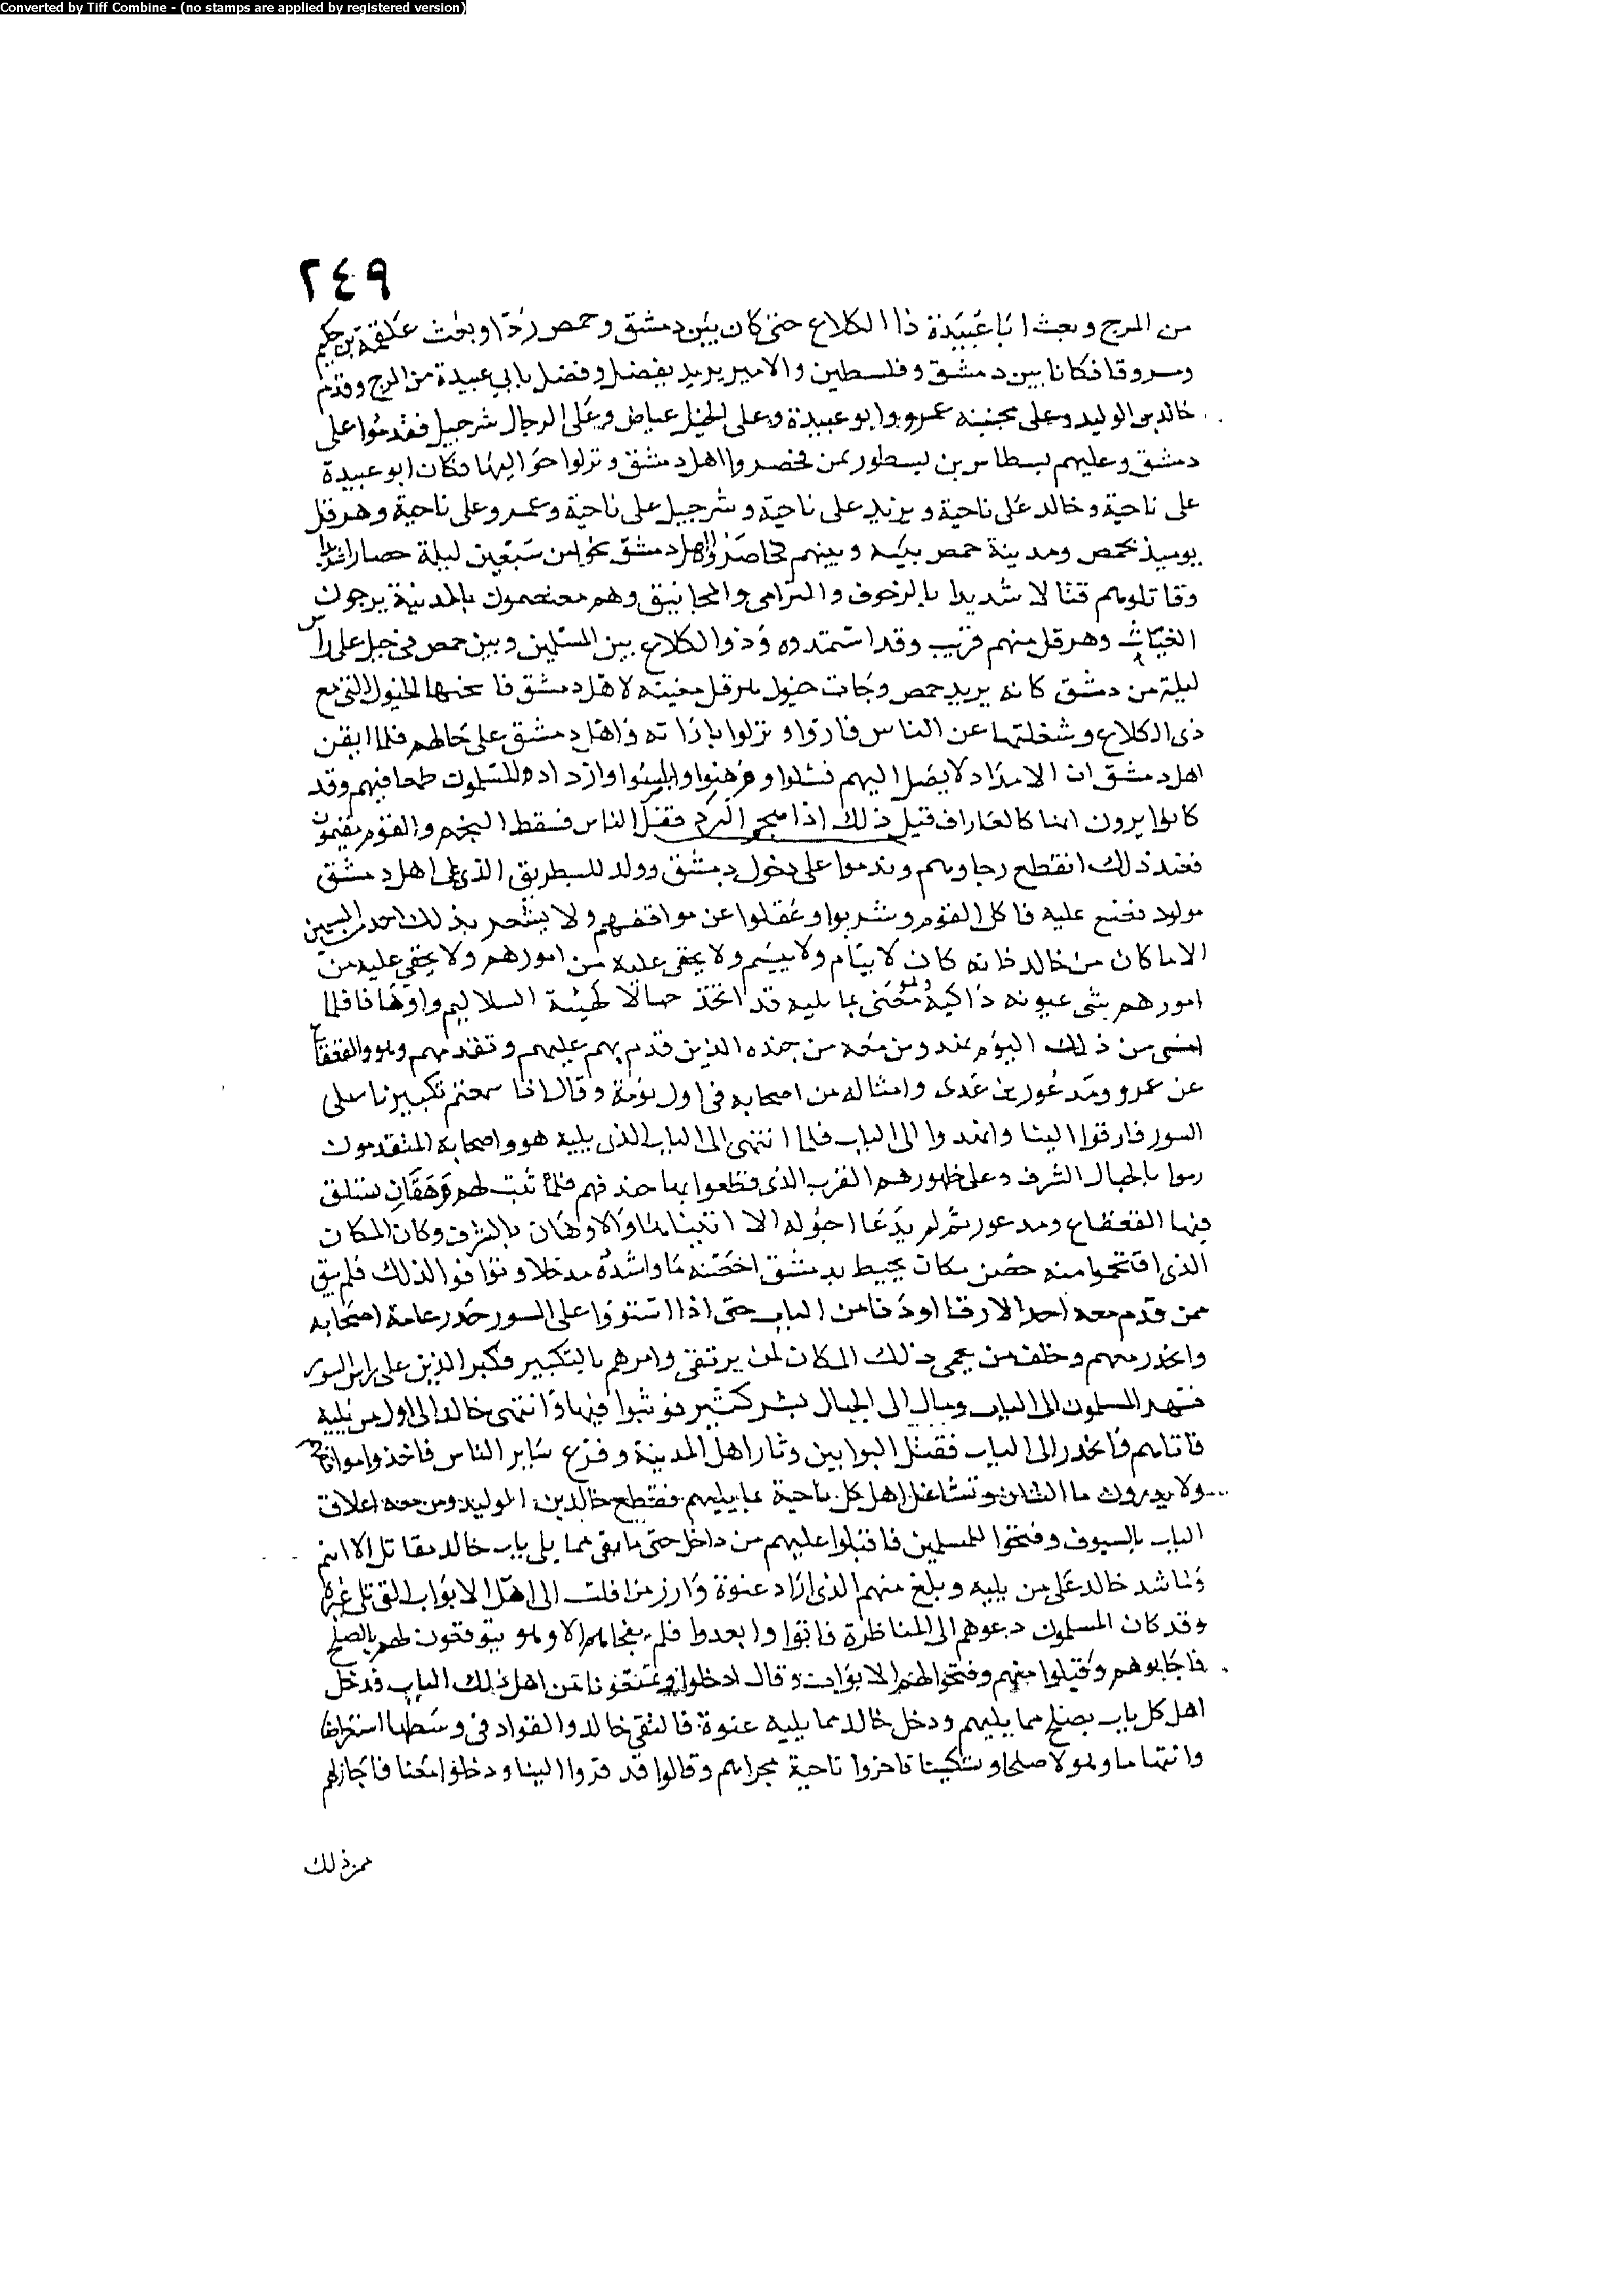 Converted by Tiff Combine - (no stamps are applied by registered version)
٢٤٩
من المرج وبعث ابا عبيدة ذا الكلاع حتى كان بين دمشق وحمص ردا وبعث علقمة بن حكيم
ومسروقا فكانا بين دمشق وفلسطين والامير يزيد بفضل وفضل بابي عبيدة من المرج وقدم
خالد بن الوليد وعلى مجنبته عمرو وابو عبيدة وعلى الخيل عياض وعلى الرجال شرحبيل فقدموا على
دمشق وعليهم نسطاس بن نسطور بمن فحصروا اهل دمشق ونزلوا حواليها فكان ابو عبيدة
على ناحية وخالد على ناحية ويزيد على ناحية وشرحبيل على ناحية وعمرو على ناحية وهرقل
يوميذ بحمص ومدينة حمص بينه وبينهم فحاصروا اهل دمشق نحوا من سبعين ليلة حصارا شديدا
وقاتلوهم قتالا شديدا بالزحوف والترامي والمجانيق وهم معتصمون بالمدينة يرجون
الغياث وهرقل منهم قريب وقد استمدوه وذوا الكلاع بين المسلمين وبين حمص في جبل على راس
ليلة من دمشق كانه يريد حمص وجات خيول هرقل مغيثه لاهل دمشق فاشجتها الخيول التي مع
ذي الكلاع وشغلتها عن الناس فارزوا ونزلوا بازائه واهل دمشق على حالهم فلما ايقن
اهل دمشق ان الامداد لا يصل اليهم فشلوا ووهنوا وابلسوا وازداد المسلمون طمعا فيهم وقد
كانوا يرون انها كالغارات قبل ذلك اذا هجم البرد قفل الناس فسقط النجم والقوم مقيمون
فعند ذلك انقطع رجاوهم وندموا على دخول دمشق وولد للبطريق الذي على اهل دمشق
مولود فصنع عليه فاكل القوم وشربوا وغفلوا عن مواقفهم ولا يشعر بذلك احد من المسلمين
الا ما كان من خالد فانه كان لا ينام ولا ينيم ولا يخفى عليه من امورهم ولا يخفى عليه من
امورهم شي عيونه ذاكية وهو معنى بما يليه قد اتخذ حبالا كهيئة السلاليم واوهاقا فلما
امسى من ذلك اليوم نهد ومن معه من جنده الذين قدم بهم عليهم وتقدمهم وهو والقعقاع
عن عمرو ومذعور بن عدى وامثاله من اصحابه في اول نومة وقال اذا سمعتم تكبيرنا على
السور فارقوا الينا وانهدوا الى الباب فلما انتهى الى الباب الذي يليه هو واصحابه المتقدمون
رموا بالحبال الشرف وعلى ظهورهم القرب الذي قطعوا بها خندقهم فلما ثبت لهم وهقان تسلق
فيها القعقاع ومذعور ثم لم يدعا احبولة الا اثبتاها والاوهاق بالشرف وكان المكان
الذي اقتحموا منه حصن مكان يحيط بدمشق اخصنه ما واشده مدخلا وتوافوا لذلك فلم يبق
ممن قدم معه احد الا رقا او دنا من الباب حتى اذا استووا على السور حدر عامة اصحابه
وانحدر معهم وخلف من يحمى ذلك المكان لمن يرتقى وامرهم بالتكبير فكبر الذين على راس السور
فنهد المسلمون الى الباب ومال الى الحبال بشر كثير فوثبوا فيها وانتهى خالد الى اول من يليه
فاتاهم فانحدر الى الباب فقتل البوابين وثار اهل المدينة وفزع ساير الناس فاخذوا مواقفهم
ولا يدرون ما الشان وتشاغل اهل كل ناحية بما يليهم فقطع خالد بن الوليد ومن معه اغلاق
الباب بالسيوف وفتحوا للمسلمين فاقبلوا عليهم من داخل حتى ما بقى مما يلى باب خالد مقاتل الا انيم
ولما شد خالد على من يليه وبلغ منهم الذي اراد عنوة وارز من افلت الى اهل الابواب التي تلى غيره
وقد كان المسلمون دعوهم الى المناظرة فابوا وابعدوا فلم يفجاهم الا وهو يتوقحون لهم بالصلح
فاجابوهم وقبلوا منهم وفتحوا لهم الابواب وقال ادخلوا وتمنعونا من اهل ذلك الباب فدخل
اهل كل باب بصلح مما يليهم ودخل خالد مما يليه عنوة فالتقى خالد والقواد في وسطها استعراضا
وانتهابا وهولا صلحا وتسكينا فاجروا ناحية مجراهم وقالوا قد قروا الينا ودخلوا معنا فاجازلهم
عمر ذلك